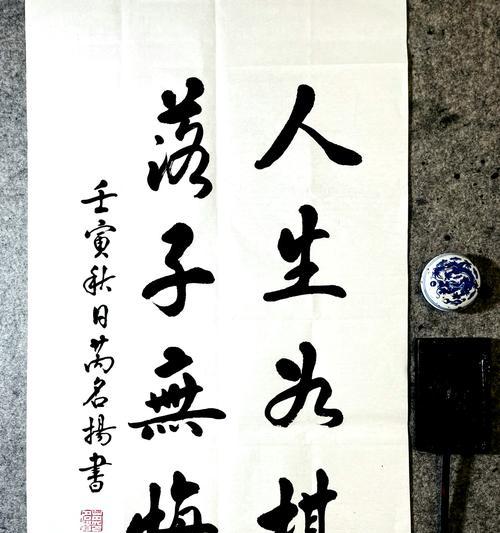 人生如棋
落子無悔
壬寅秋日萬名揚書